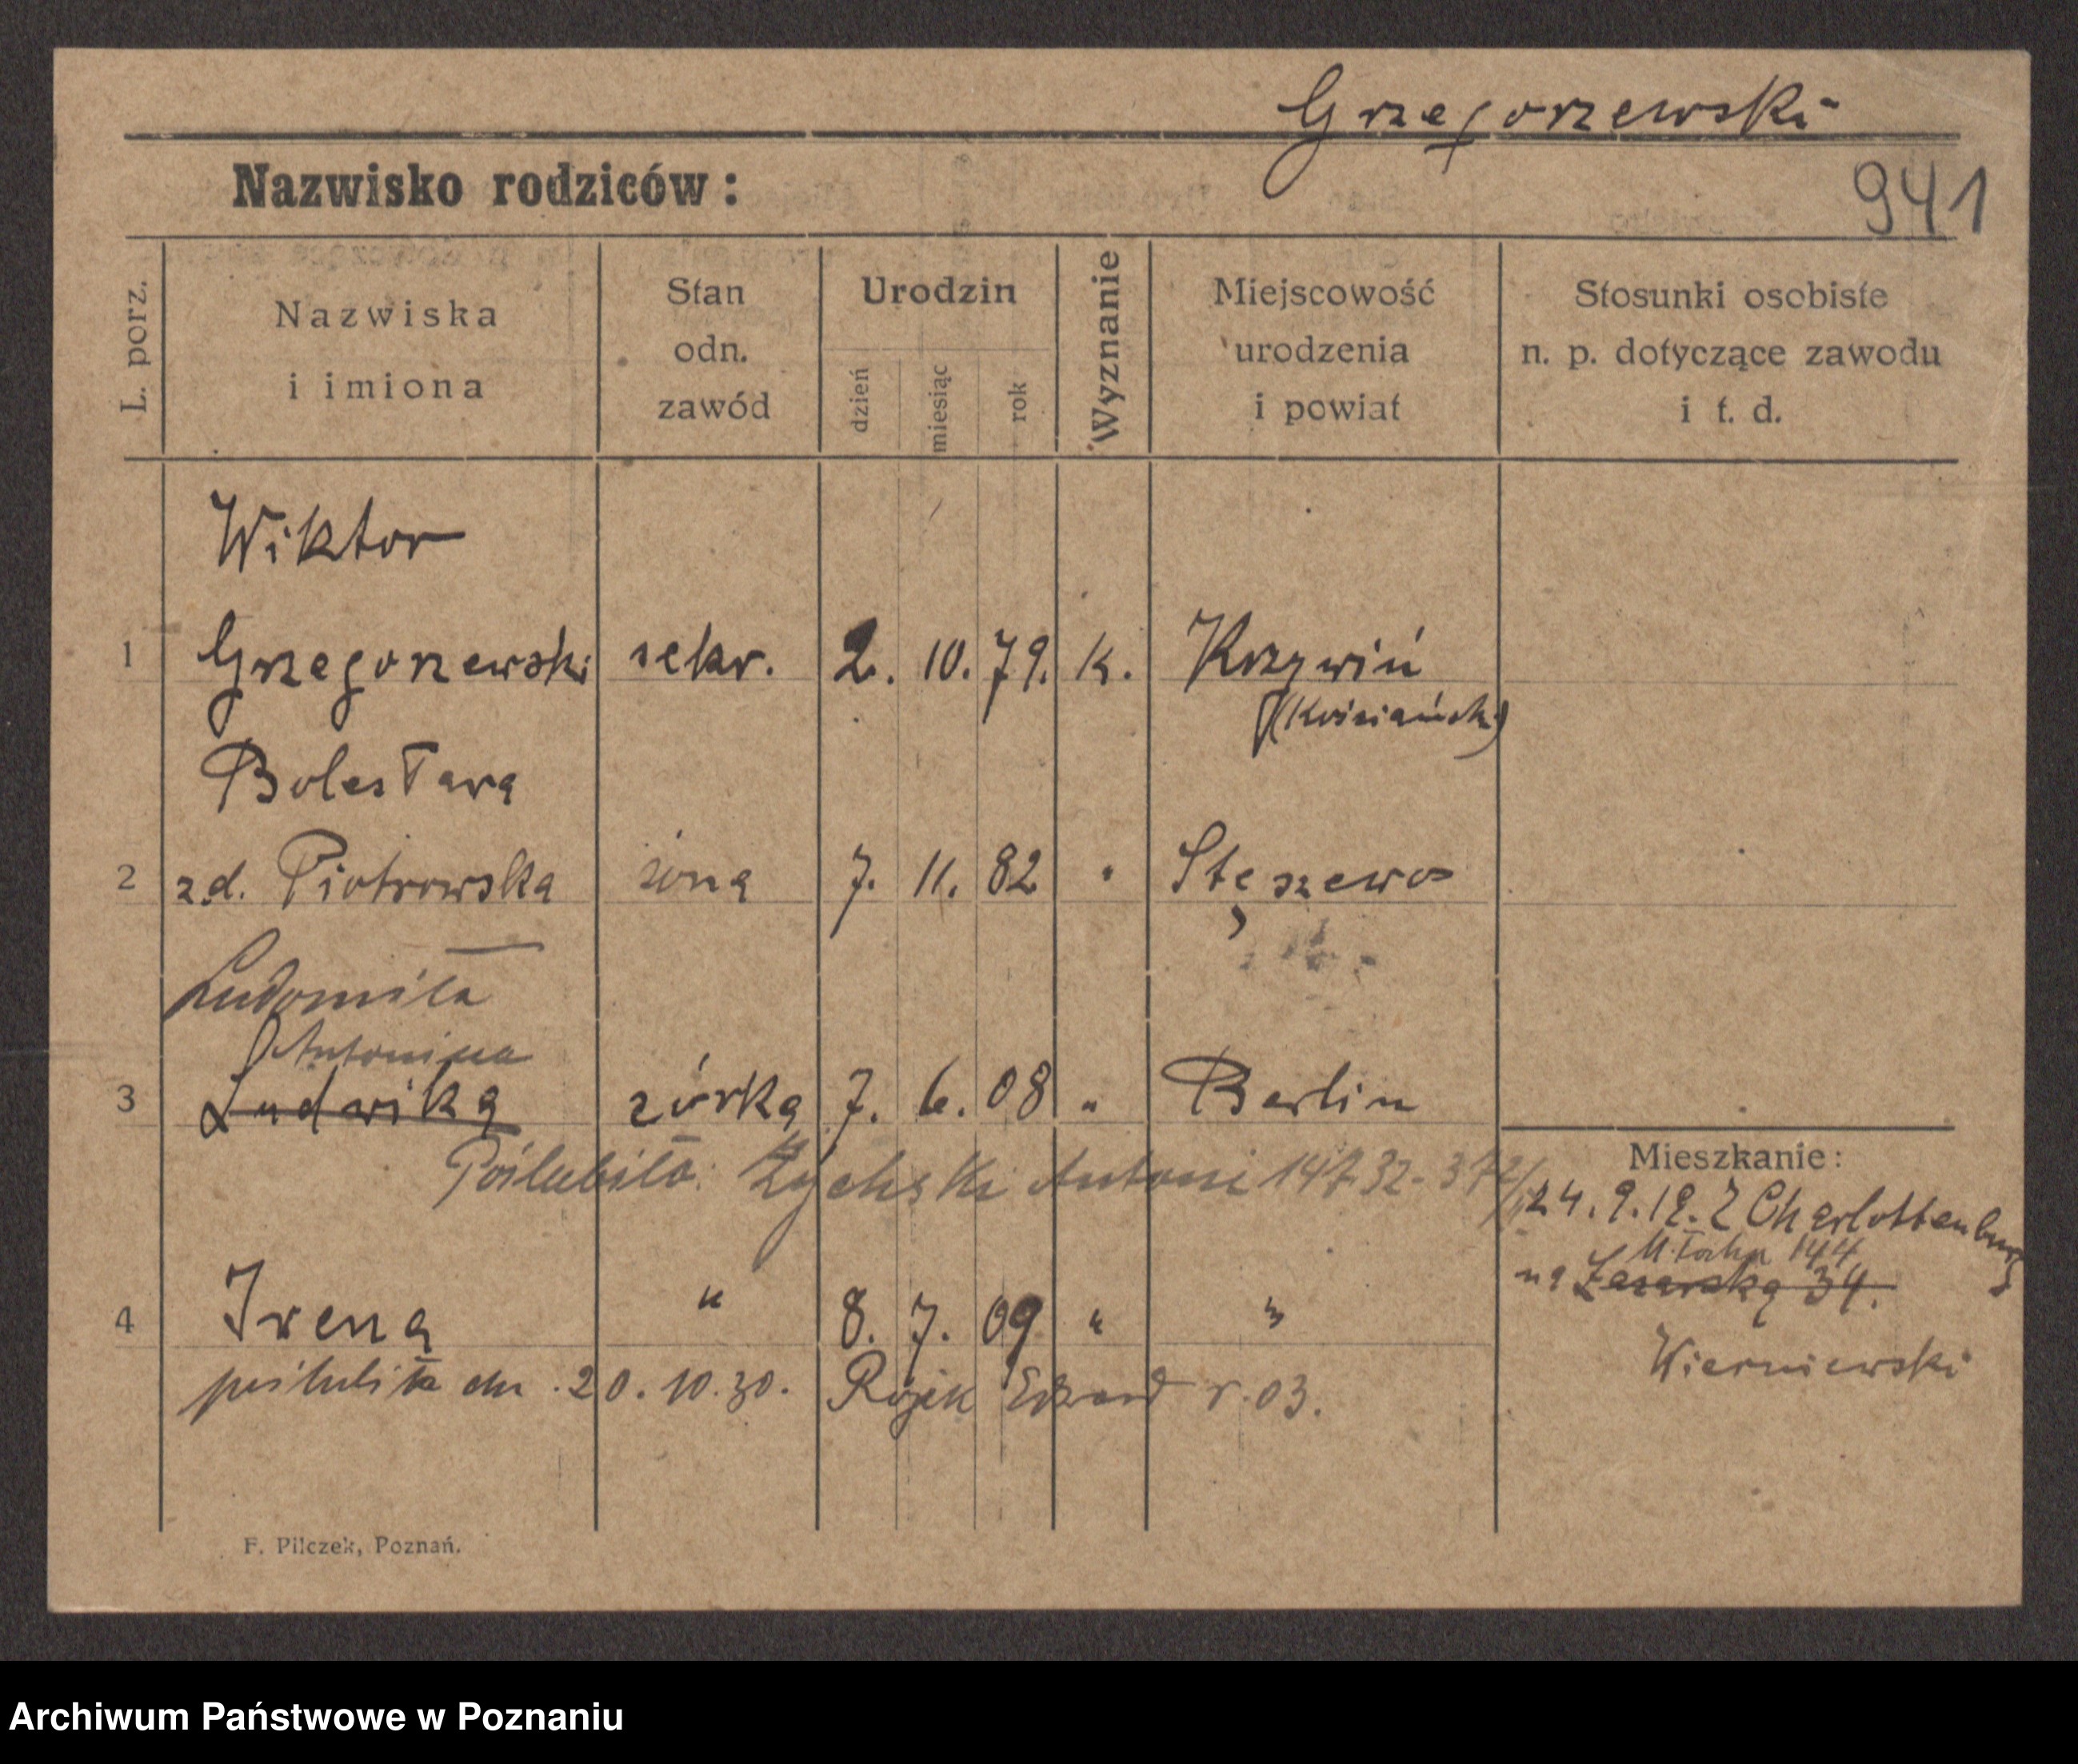 Grzegorzewski
Nazwisko rodziców:
941
L. porz.
Nazwiska
i imiona
Stan
odn.
zawód
Urodzin
dzień
miesiąc
rok
Wyznanie
Miejscowość
urodzenia
i powiat
Stosunki osobiste
n. p. dotyczące zawodu
i t. d.
Wiktor
1 Grzegorzewski sekr. 2. 10. 79. k. Krzywiń
Bolesława
2 zd. Piotrowska żona 7. 11. 82 " Stęszewo
Ludomiła
Antonina
3 Ludwika córka 7. 6. 08 " Berlin
Poślubiła: Antoni
Mieszkanie:
24. 9. 19. Z Charlottenburg
144
na 34.
4 Irena " 8. 7. 09 " "
poślubiła dn. 20. 10. 30. Rojek Edward r. 03.
Wierniewski
F. Pilczek, Poznań.
Archiwum Państwowe w Poznaniu